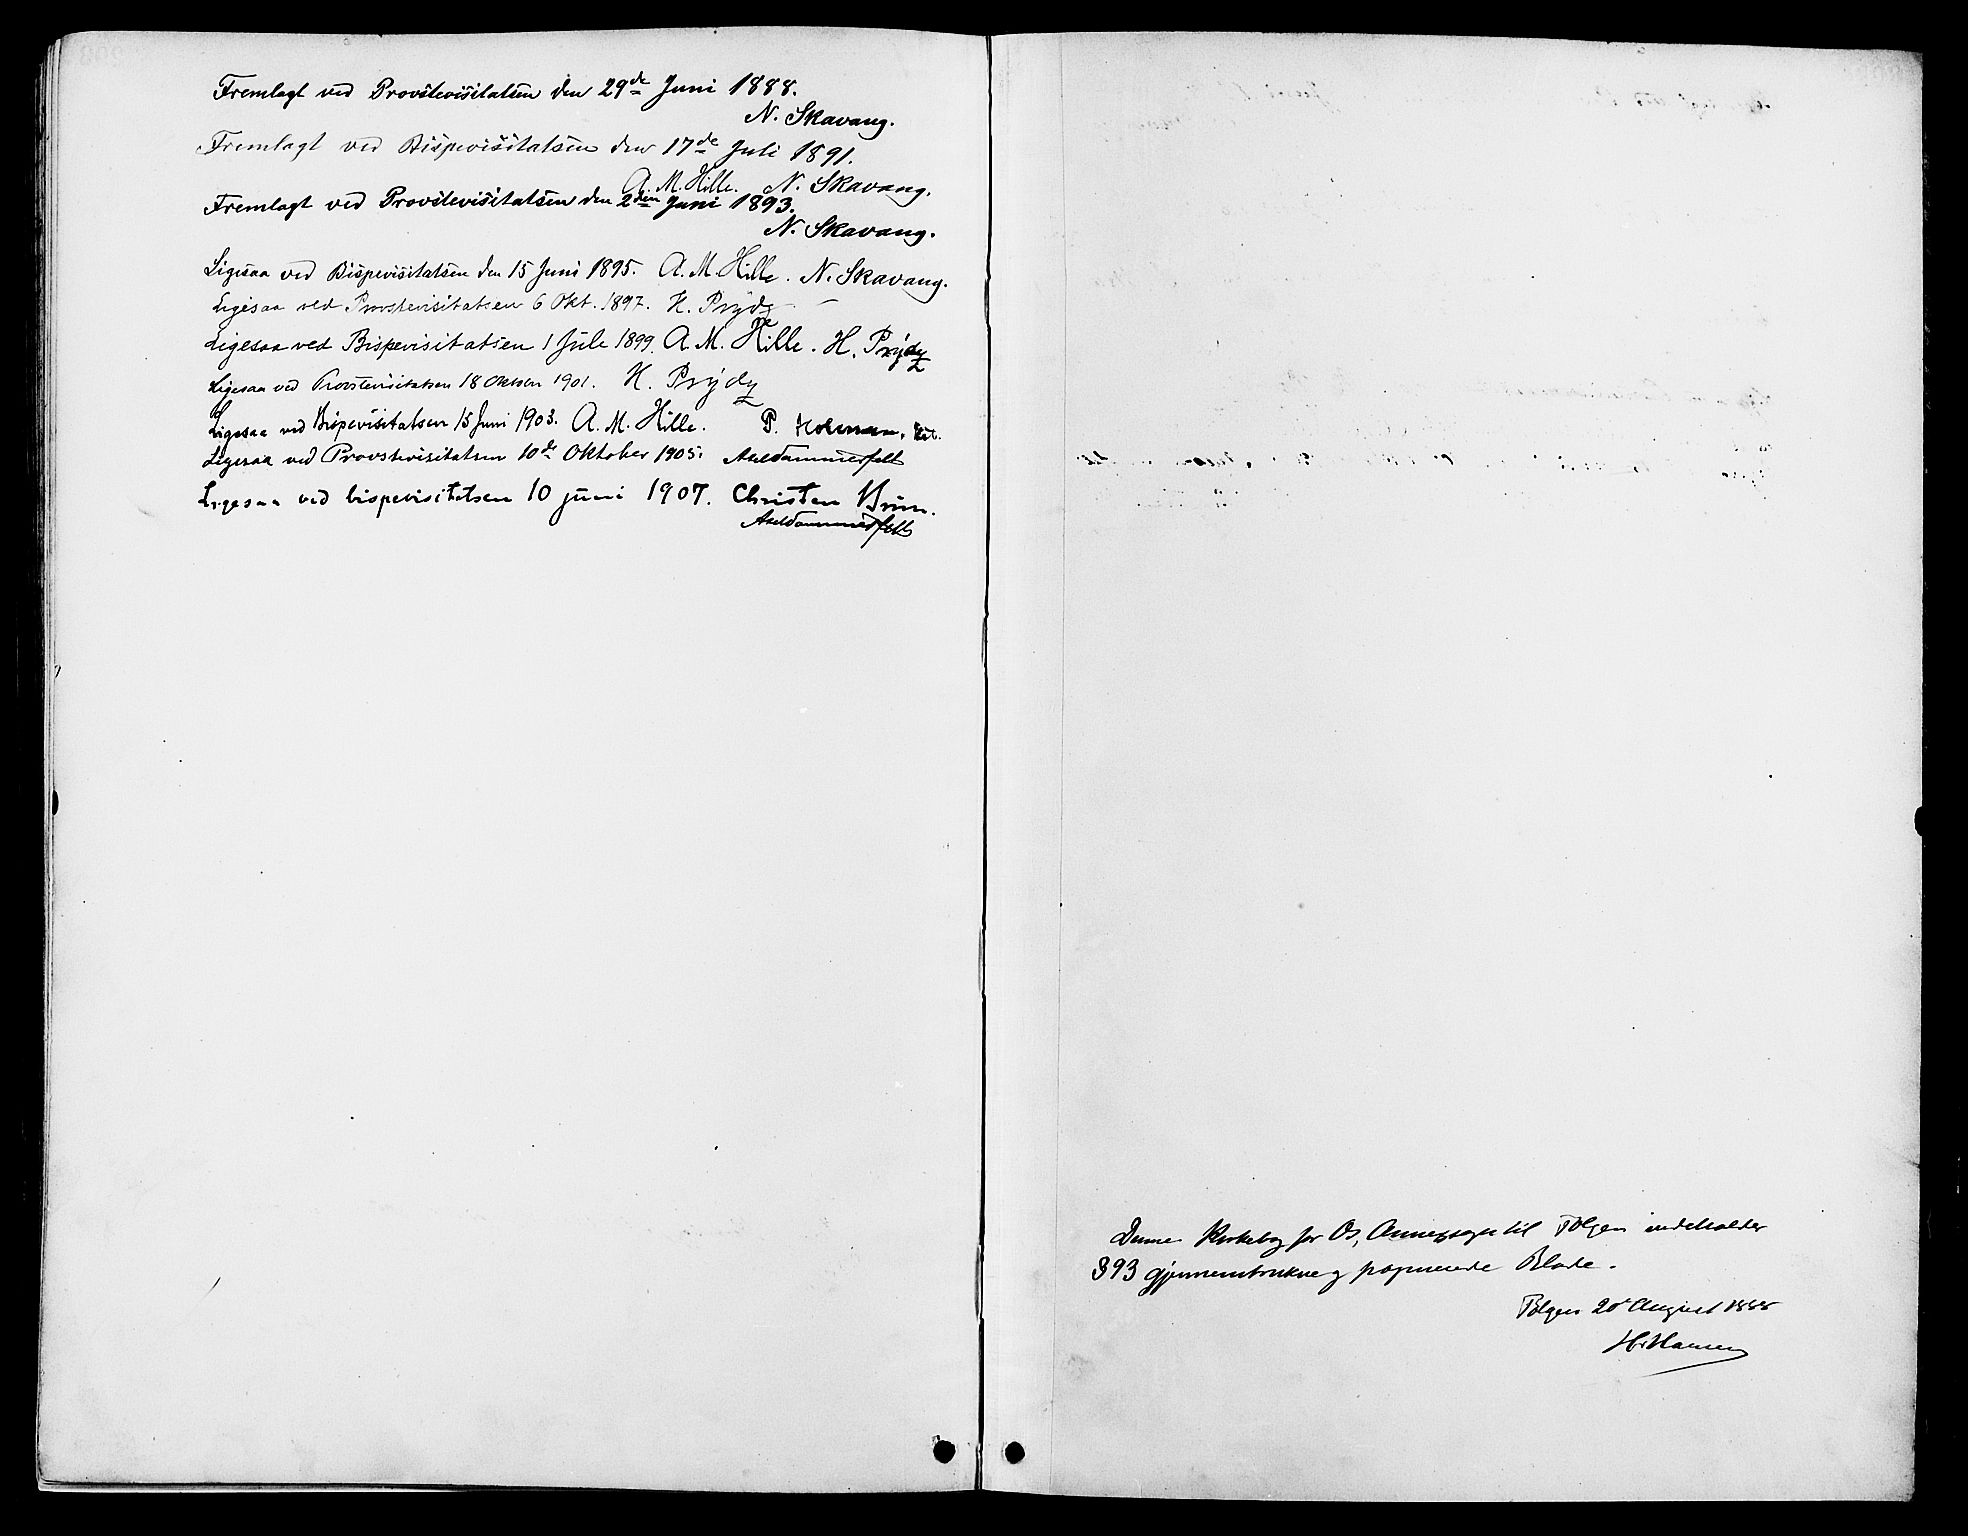 Fremlagt ved Provstevisitatsen den 29de Juni 1888.
N. Skavang.
Fremlagt ved Bispevisitatsen den 17de Juli 1891.
A. M. Hille. N. Skavang.
Fremlagt ved Provstevisitatsen den 2den Juni 1893.
N. Skavang.
Ligesaa ved Bispevisitatsen den 15 Juni 1895. A. M. Hille. N. Skavang.
Ligesaa ved Provstevisitatsen 6 Okt. 1897. H. Prydz
Ligesaa ved Bispevisitatsen 1 Juli 1899. A. M. Hille. H. Prydz
Ligesaa ved Provstevisitatsen 18 Oktober 1901. H. Prydz
Ligesaa ved Bispevisitatsen 15 Juni 1903. A. M. Hille. P.
Ligesaa ved Provstevisitatsen 10de Oktober 1905.
Ligesaa ved bispevisitatsen 10 juni 1907. Christen Brun.
Denne Kirkebog for Os, Annexsogn til Tolgen indeholder
393 gjennemtrukne og paginerede Blade.
Tolgen 20 August 1888